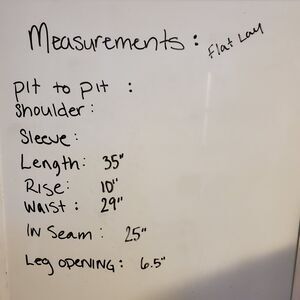 Measurements : Flat Lay
pit to pit :
Shoulder :
Sleeve :
Length : 35"
Rise : 10"
Waist : 29"
In Seam : 25"
Leg opening : 6.5"